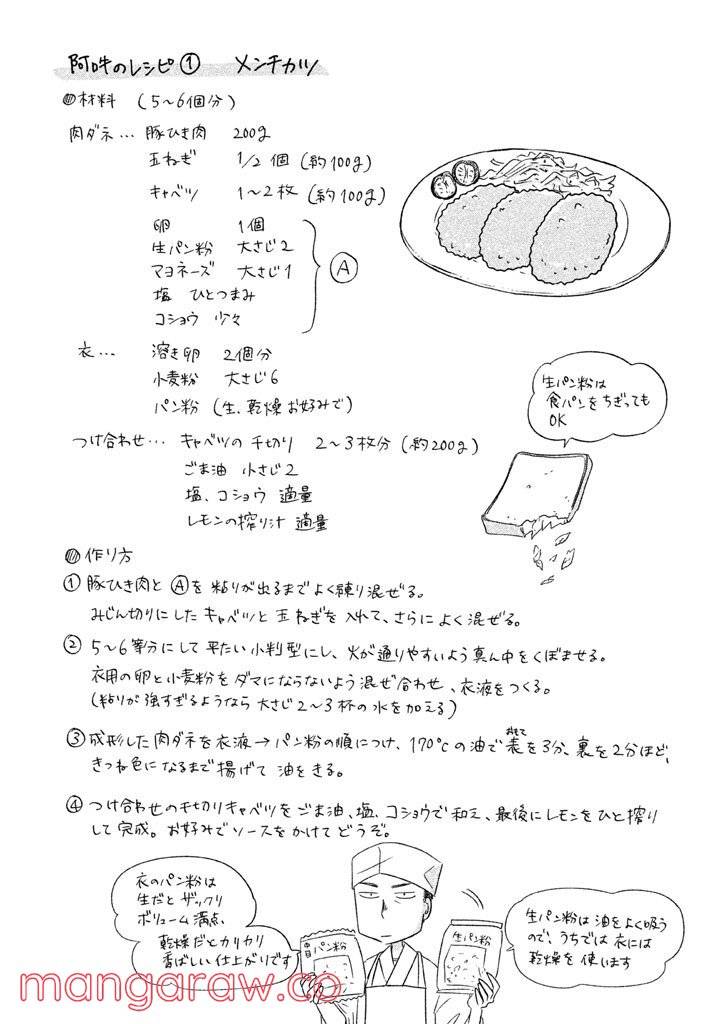 阿吽のレシピ① メンチカツ
◎材料 (5〜6個分)
肉ダネ… 豚ひき肉 200g
玉ねぎ 1/2個 (約100g)
キャベツ 1〜2枚 (約100g)
卵 1個
生パン粉 大さじ2
マヨネーズ 大さじ1
塩 ひとつまみ
コショウ 少々
Ⓐ
衣… 溶き卵 2個分
小麦粉 大さじ6
パン粉 (生、乾燥お好みで)
生パン粉は
食パンをちぎっても
OK
つけ合わせ… キャベツの千切り 2〜3枚分 (約200g)
ごま油 小さじ2
塩、コショウ 適量
レモンの搾り汁 適量
◎作り方
① 豚ひき肉とⒶを粘りが出るまでよく練り混ぜる。
みじん切りにしたキャベツと玉ねぎを入れて、さらによく混ぜる。
② 5〜6等分にして平たい小判型にし、火が通りやすいよう真ん中をくぼませる。
衣用の卵と小麦粉をダマにならないよう混ぜ合わせ、衣液をつくる。
(粘りが強すぎるようなら大さじ2〜3杯の水を加える)
③ 成形した肉ダネを衣液→パン粉の順につけ、170℃の油で表を3分、裏を2分ほど、
おもて
きつね色になるまで揚げて油をきる。
④ つけ合わせの千切りキャベツをごま油、塩、コショウで和え、最後にレモンをひと搾り
して完成。お好みでソースをかけてどうぞ。
衣のパン粉は
生だとザックリ
ボリューム満点、
乾燥だとカリカリ
香ばしい仕上がりです
パン粉
生パン粉
生パン粉は油をよく吸う
ので、うちでは衣には
乾燥を使います
mangaraw.co